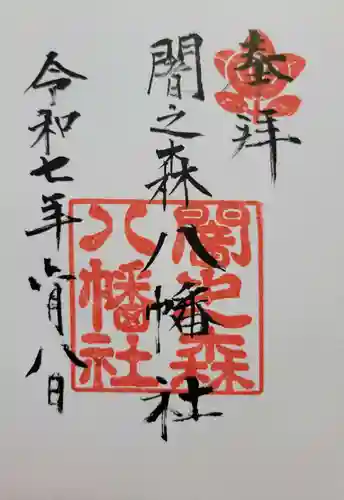 奉拝
闇之森八幡社
闇之森
八幡社
令和七年六月八日